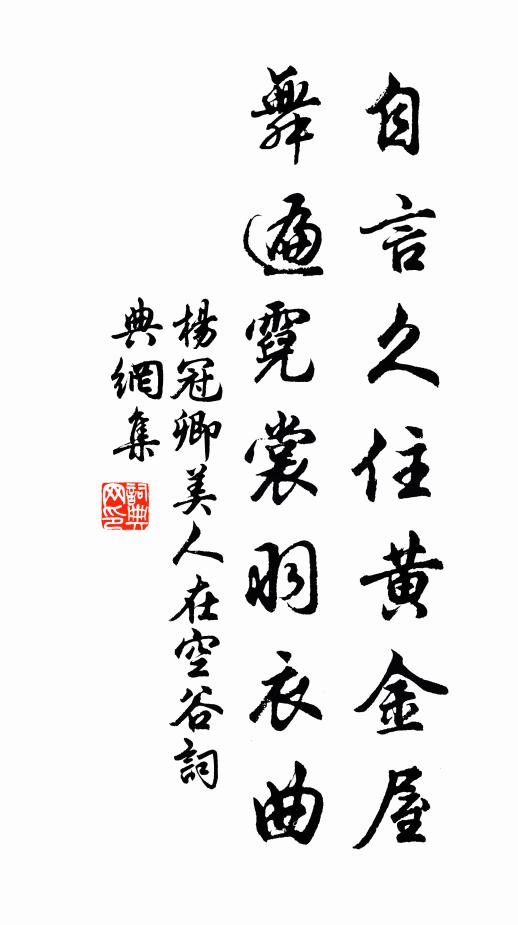 自言久住黄金屋
舞遍霓裳羽衣曲
楊冠卿美人在空谷詞
典網集
詞典
网印